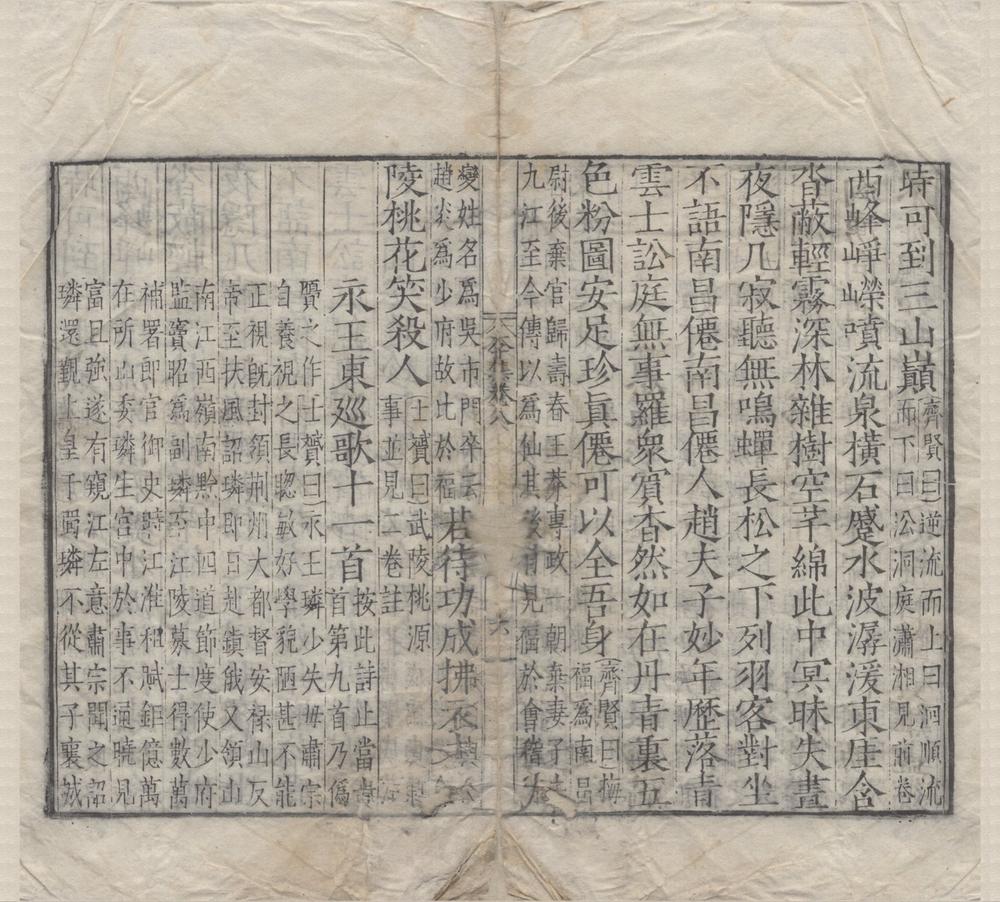 時可到三山巓齊賢曰逆流而上曰洄順流
而下曰㳂洞庭瀟湘見前卷
西峰崢嶸噴流泉橫石蹙水波潺湲東崖合
沓蔽輕霧深林雜樹空芊綿此中冥昧失晝
夜隱几寂聽無鳴蟬長松之下列羽客對坐
不語南昌僊南昌僊人趙夫子妙年歷落青
雲士訟庭無事羅衆賓杳然如在丹青裏五
色粉圖安足珍眞僊可以全吾身齊賢曰梅
福爲南昌
尉後棄官歸壽春王莽專政一朝棄妻子去
九江至今傳以爲仙其後有見福於會稽
變姓名爲吳市門卒云
趙炎爲少府故比於福若待功成拂衣
陵桃花笑殺人士贇曰武陵桃源
事並見二卷註
永王東廵歌十一首按此詩止當
首第九首乃僞
贋之作士贇曰永王璘少失毋肅宗
自養視之長聦敏好學貌陋甚不能
正視旣封領荊州大都督安祿山反
帝至扶風詔璘即日赴鎮俄又領山
南江西嶺南黔中四道節度使少府
監竇昭爲副璘至江陵募士得數萬
補署郎官御史時江淮租賦鉅億萬
在所山委璘生宮中於事不通曉見
富且強遂有窺江左意肅宗聞之詔
璘還覲上皇于蜀璘不從其子襄城
卷八
六